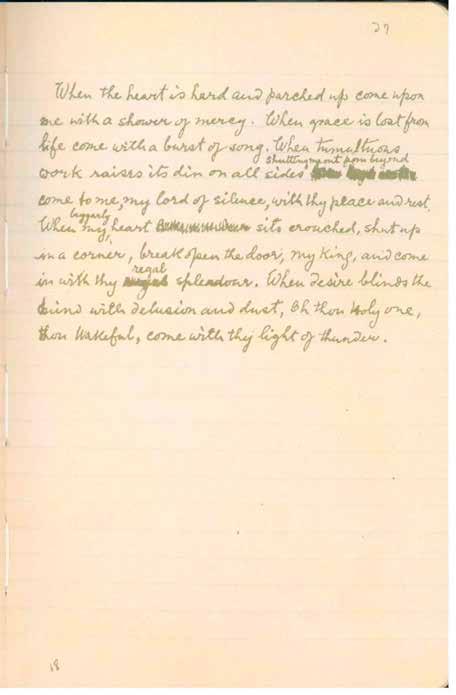 27
When the heart is hard and parched up come upon
me with a shower of mercy. When grace is lost from
life come with a burst of song. When tumultuous
shutting me out from beyond
work raises its din on all sides
come to me, my lord of silence, with thy peace and rest.
beggarly
When my heart sits crouched, shut up
in a corner, break open the door, my king, and come
regal
in with thy splendour. When desire blinds the
mind with delusion and dust, Oh thou Holy one,
thou Wakeful, come with thy light of thunder.
18